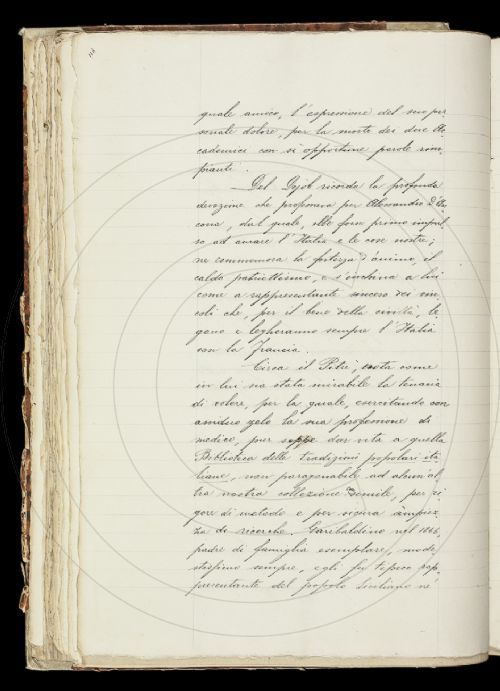 quale amico, l'espressione del suo per
sonale dolore, per la morte dei due Ac
cademici con sì opportune parole com
pianti.
Del Dejob ricorda la profonda
devozione che professava per Alessandro D'An
cona, dal quale, ebbe forse primo impul
so ad amare l'Italia e le cose nostre;
ne commemora la fortezza d'animo, il
caldo patriottismo, e s'inchina a lui
come a rappresentante sincero dei vin
coli che, per il bene della civiltà, le
gano e legheranno sempre l'Italia
con la Francia.
Circa il Pitrè, nota come
in lui sia stata mirabile la tenacia
di volere, per la quale, esercitando con
assiduo zelo la sua professione di
medico, pur seppe dar vita a quella
Biblioteca delle tradizioni popolari sici
liane, non paragonabile ad alcun'al
tra nostra collezione simile, per ri
gore di metodo e per sicura ampiez
za di ricerche. Garibaldino nel 1866,
padre di famiglia esemplare, mode
stissimo sempre, egli fu tipico rap
presentante del popolo siciliano ne'